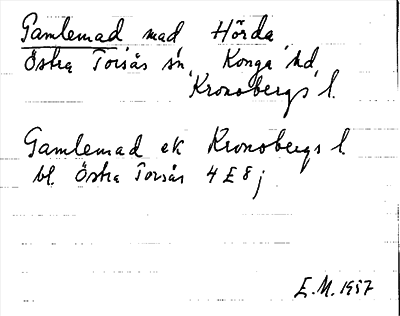 Gamlemad mad Hörda
Östra Torsås sn, Konga hd,
Kronobergs l.
Gamlemad ek Kronobergs l.
bl. Östra Torsås 4E8j
E.M. 1957